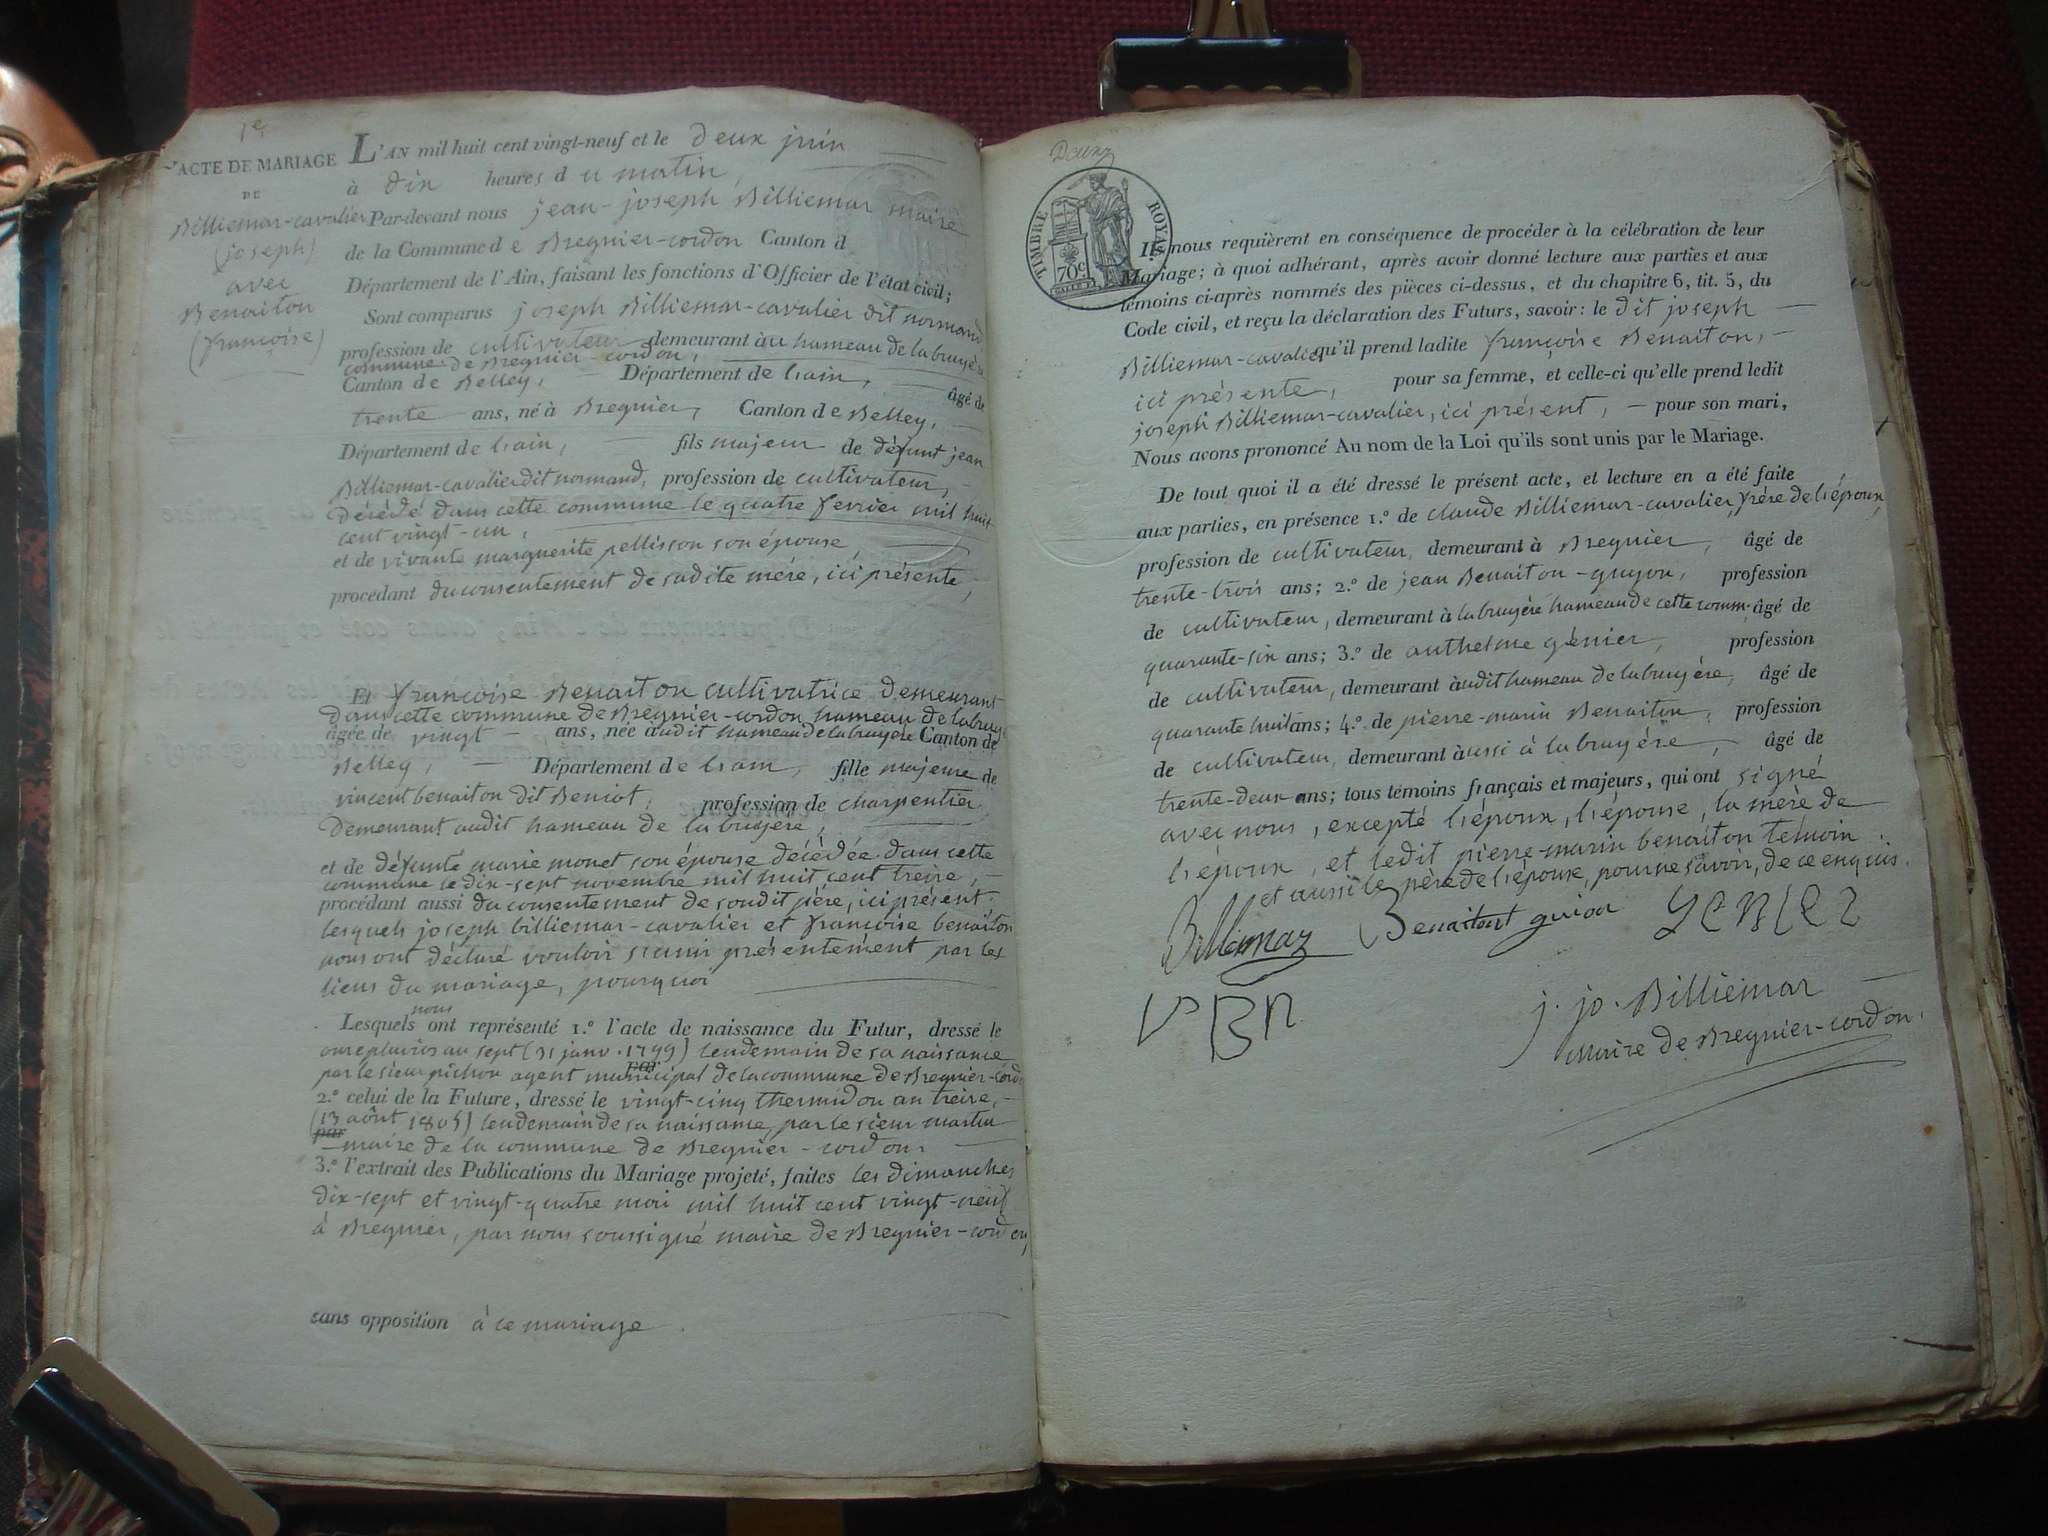 1er
ACTE DE MARIAGE
DE
Billiemar-cavalier
(joseph)
avec
Benaiton
(françoise)
L'AN mil huit cent vingt-neuf et le deux juin
à dix heures du matin,
Par-devant nous jean-joseph Billiemar maire
de la Commune de Bregnier-cordon Canton d
Département de l'Ain, faisant les fonctions d'Officier de l'état civil;
Sont comparus joseph Billiemar-cavalier dit normand
profession de cultivateur demeurant au hameau de labruyère
commune de Bregnier-cordon,
Canton de Belley, Département de l'ain, âgé de
trente ans, né à Bregnier, Canton de Belley,
Département de l'ain, fils majeur de défunt jean
Billiemar-cavalier dit normand, profession de cultivateur,
décédé dans cette commune le quatre fevrier mil huit
cent vingt-un,
et de vivante marguerite pellisson son épouse,
procédant du consentement de sadite mére, ici présente,
Et françoise Benaiton cultivatrice demeurant
dans cette commune de Bregnier-cordon hameau de labruy
âgée de vingt ans, née audit hameau de labruyere Canton de
Belley, Département de l'ain, fille majeure de
vincent benaiton dit Beniot, profession de charpentier
demeurant audit hameau de la bruyere,
et de défunte marie monet son épouse décédée dans cette
commune le dix-sept novembre mil huit cent treize,
procédant aussi du consentement de sondit pére, ici présent.
lesquels joseph billiemar-cavalier et françoise benaiton
nous ont déclaré vouloir s'unir présentément par les
liens du mariage, pourquoi
Lesquels nous ont représenté 1.º l'acte de naissance du Futur, dressé le
onze pluviose an sept (31 janv. 1799) lendemain de sa naissance
par le sieur pichon agent municipal de la commune de Bregnier-cord
2.º celui de la Future, dressé le vingt-cinq thermidor an treize,
(13 août 1805) lendemain de sa naissance, par le sieur martin
par maire de la commune de Bregnier-cordon,
3.º l'extrait des Publications du Mariage projeté, faites les dimanches
dix-sept et vingt-quatre mai mil huit cent vingt-neuf
à Bregnier, par nous soussigné maire de Bregnier-cordon,
sans opposition à ce mariage.
TIMBRE ROYAL
70c
Ils nous requièrent en conséquence de procéder à la célébration de leur
Mariage; à quoi adhérant, après avoir donné lecture aux parties et aux
témoins ci-après nommés des pièces ci-dessus, et du chapitre 6, tit. 5, du
Code civil, et reçu la déclaration des Futurs, savoir: le dit joseph
Billiemar-cavalier qu'il prend ladite françoise Benaiton,
ici présente, pour sa femme, et celle-ci qu'elle prend ledit
joseph Billiemar-cavalier, ici présent, pour son mari,
Nous avons prononcé Au nom de la Loi qu'ils sont unis par le Mariage.
De tout quoi il a été dressé le présent acte, et lecture en a été faite
aux parties, en présence 1.º de claude Billiemar-cavalier, frére de l'époux,
profession de cultivateur, demeurant à Bregnier, âgé de
trente-trois ans; 2.º de jean Benaiton-guyon, profession
de cultivateur, demeurant à labruyère hameau de cette comm. âgé de
quarante-six ans; 3.º de anthelme génier, profession
de cultivateur, demeurant audit hameau de labruyère, âgé de
quarante huit ans; 4.º de pierre-marin Benaiton, profession
de cultivateur, demeurant aussi à la bruyére, âgé de
trente-deux ans; tous témoins français et majeurs, qui ont signé
avec nous, excepté l'époux, l'épouse, la mère de
l'époux, et ledit pierre-marin benaiton témoin.
et aussi le père de l'épouse, pour ne savoir, de ce enquis.
Billiemaz Benaitont guion geniez
V B n
j. jo. Billiemar
maire de Bregnier-cordon.